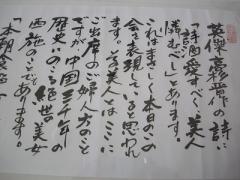 英傑高[?]作の詩に
「詩酒愛すべく美人
憐むべし」とあります。
これはまさしく本日のこの
会を表現していると思われ
ます。美人とはここに
ご出席のご婦人方のこと
ですが中国三千年の
歴史にのこる絶世の美女
西施のことであります